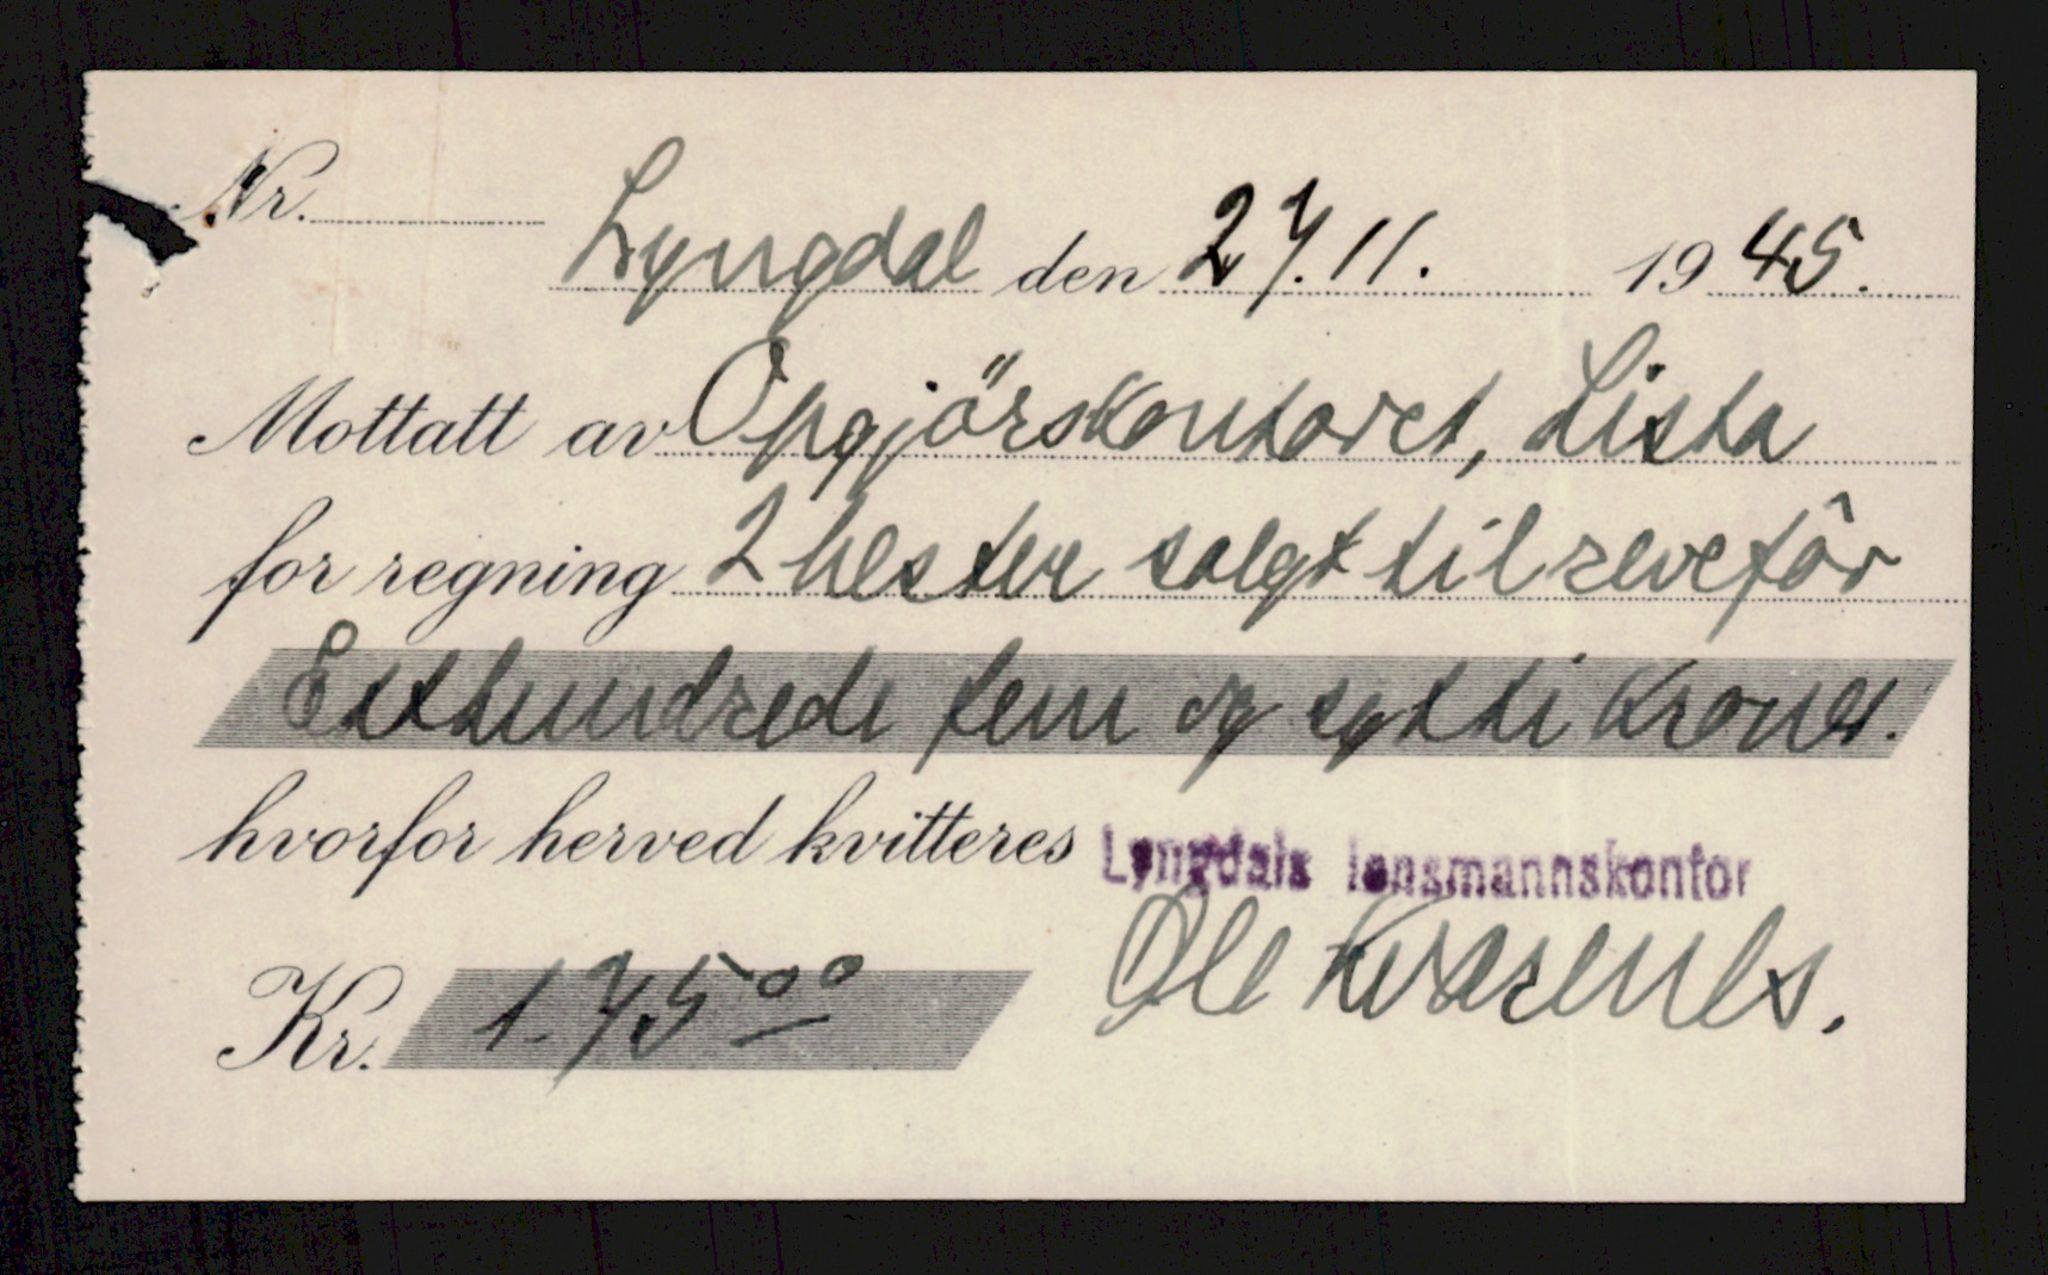 Nr.
Lyngdal den 27.11. 1945.
Mottatt av Opgjörskontoret, Lista
for regning 2 hester solgt til revefôr
Etthundrede fem og sytti kroner.
hvorfor herved kvitteres Lyngdals lensmannskontor
Kr. 175 00 Ole Kvarenes.